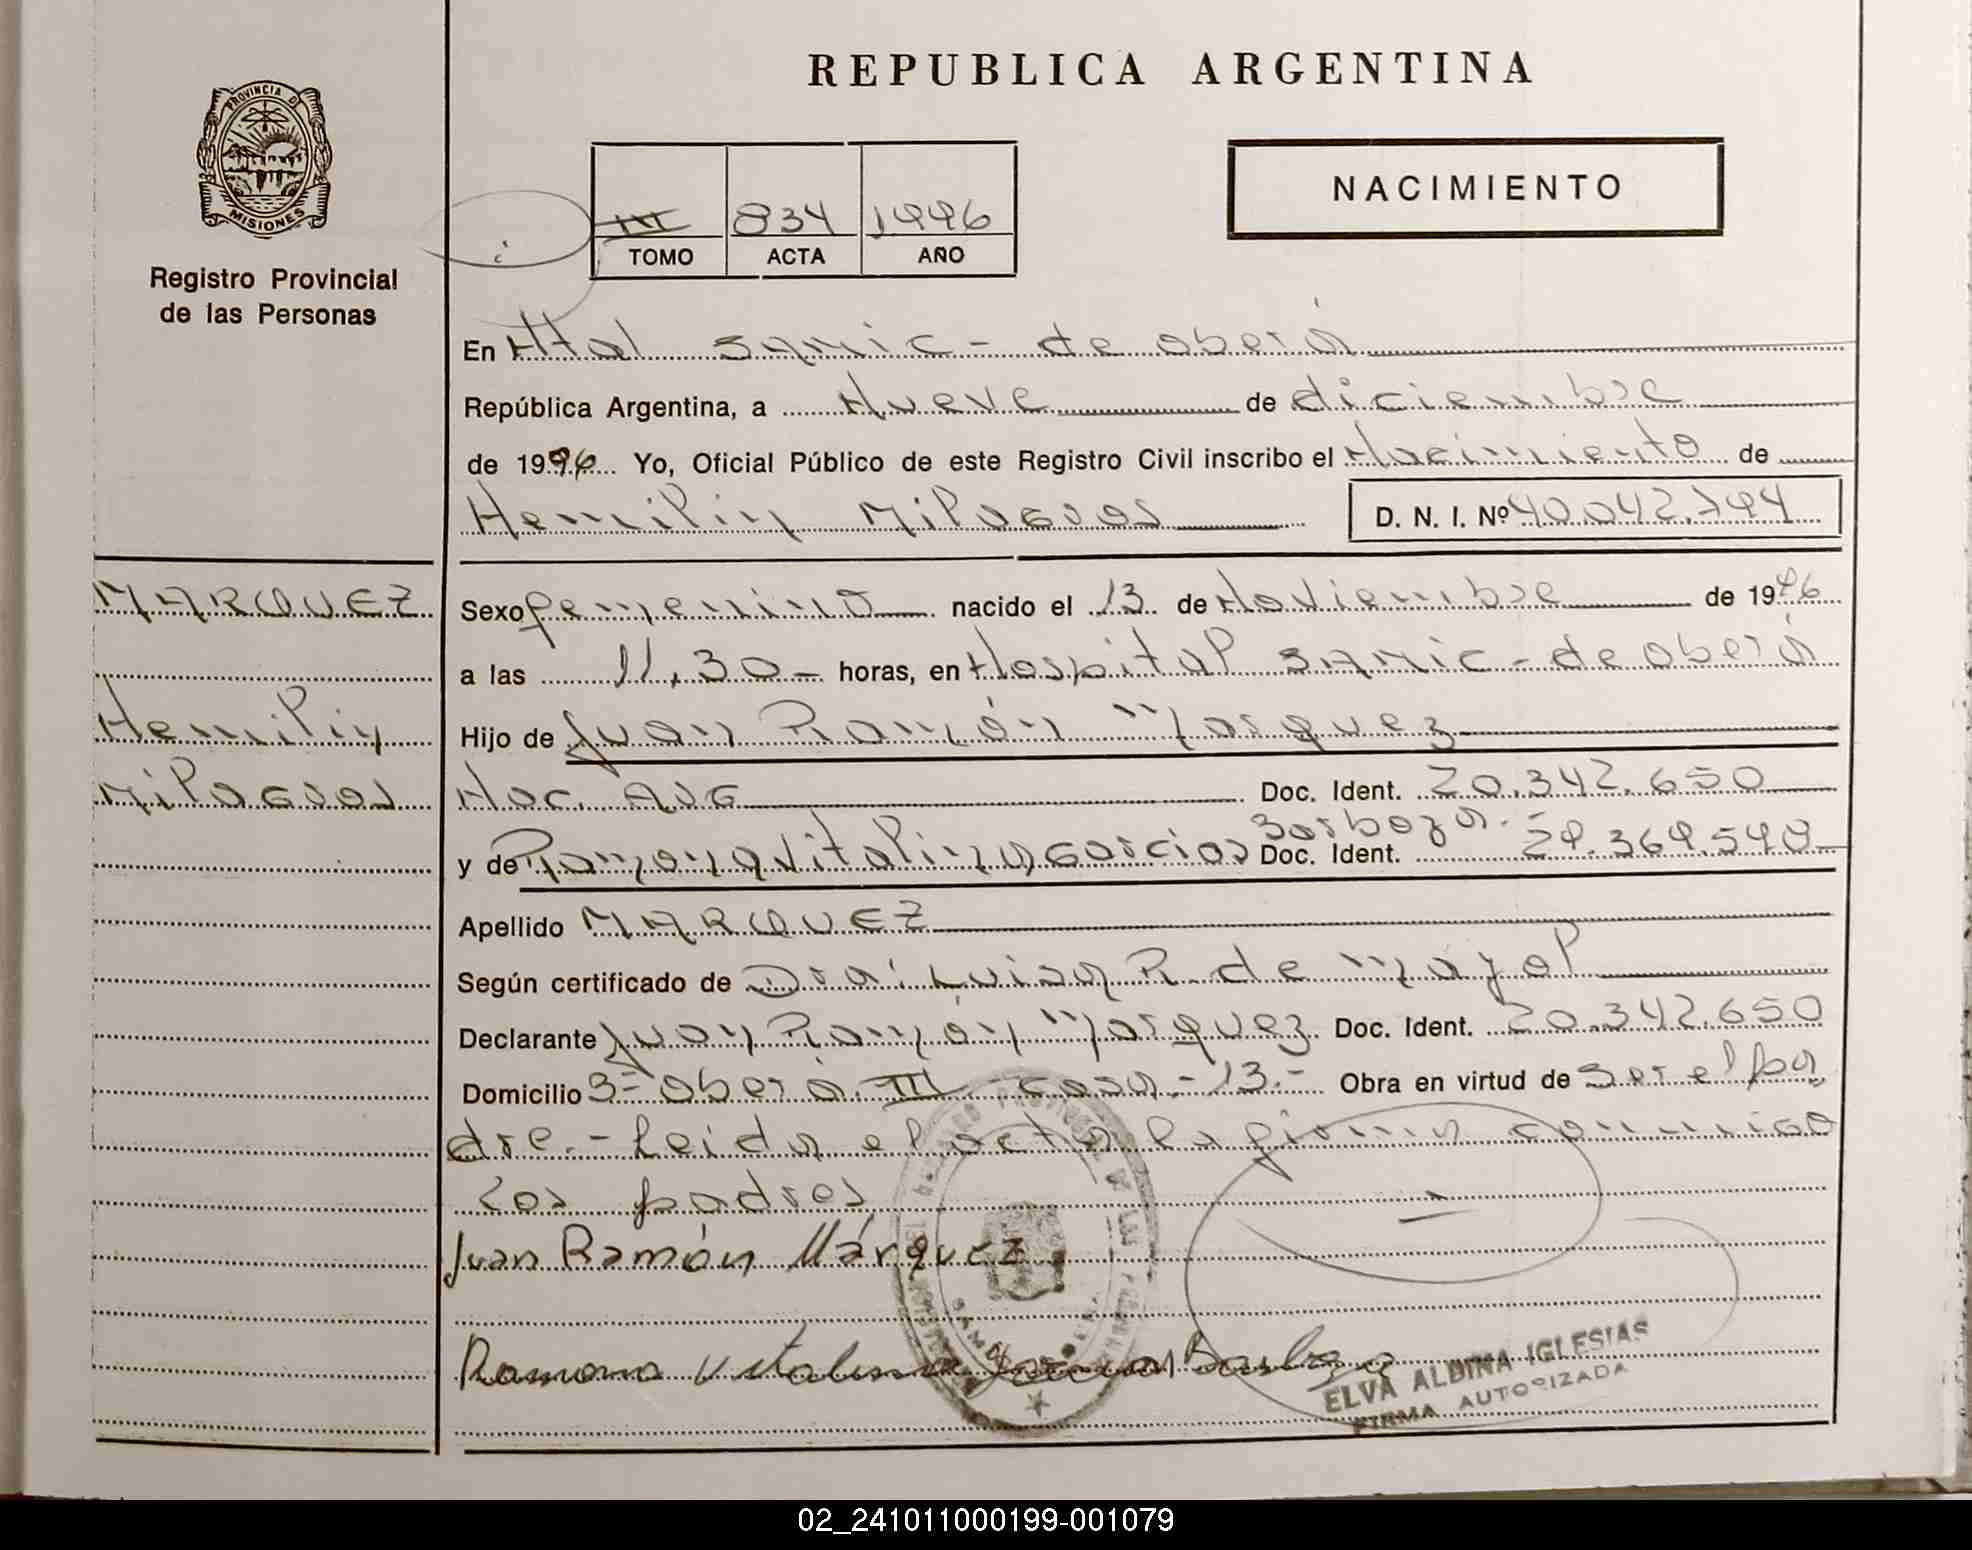 REPUBLICA ARGENTINA
PROVINCIA D
MISIONES
Registro Provincial
de las Personas
III 834 1996
TOMO ACTA AÑO
NACIMIENTO
En Htal samic - de oberá
República Argentina, a Nueve de diciembre
de 1996 Yo, Oficial Público de este Registro Civil inscribo el Nacimiento de
Hemilin Milagros D. N. I. Nº 40.042.794
MARQUEZ
Hemilin
Milagros
Sexo femenino nacido el 13 de Noviembre de 1996
a las 11,30 - horas, en Hospital samic - de oberá
Hijo de Juan Ramón Marquez
Nac. Arg Doc. Ident. 20.342.650
Barboza.-
y de Ramona Vitalina garcias Doc. Ident. 29.369.549
Apellido MARQUEZ
Según certificado de Dra. Luisa R. de Mayol
Declarante Juan Ramón Marquez Doc. Ident. 20.342.650
Domicilio Bº oberá III casa - 13.- Obra en virtud de ser el pa
dre.- Leida el acta la firman conmigo
los padres
Juan Ramón Márquez
Ramona Vitalina Garcias Barboza
ELVA ALBINA IGLESIAS
FIRMA AUTORIZADA
02_241011000199-001079